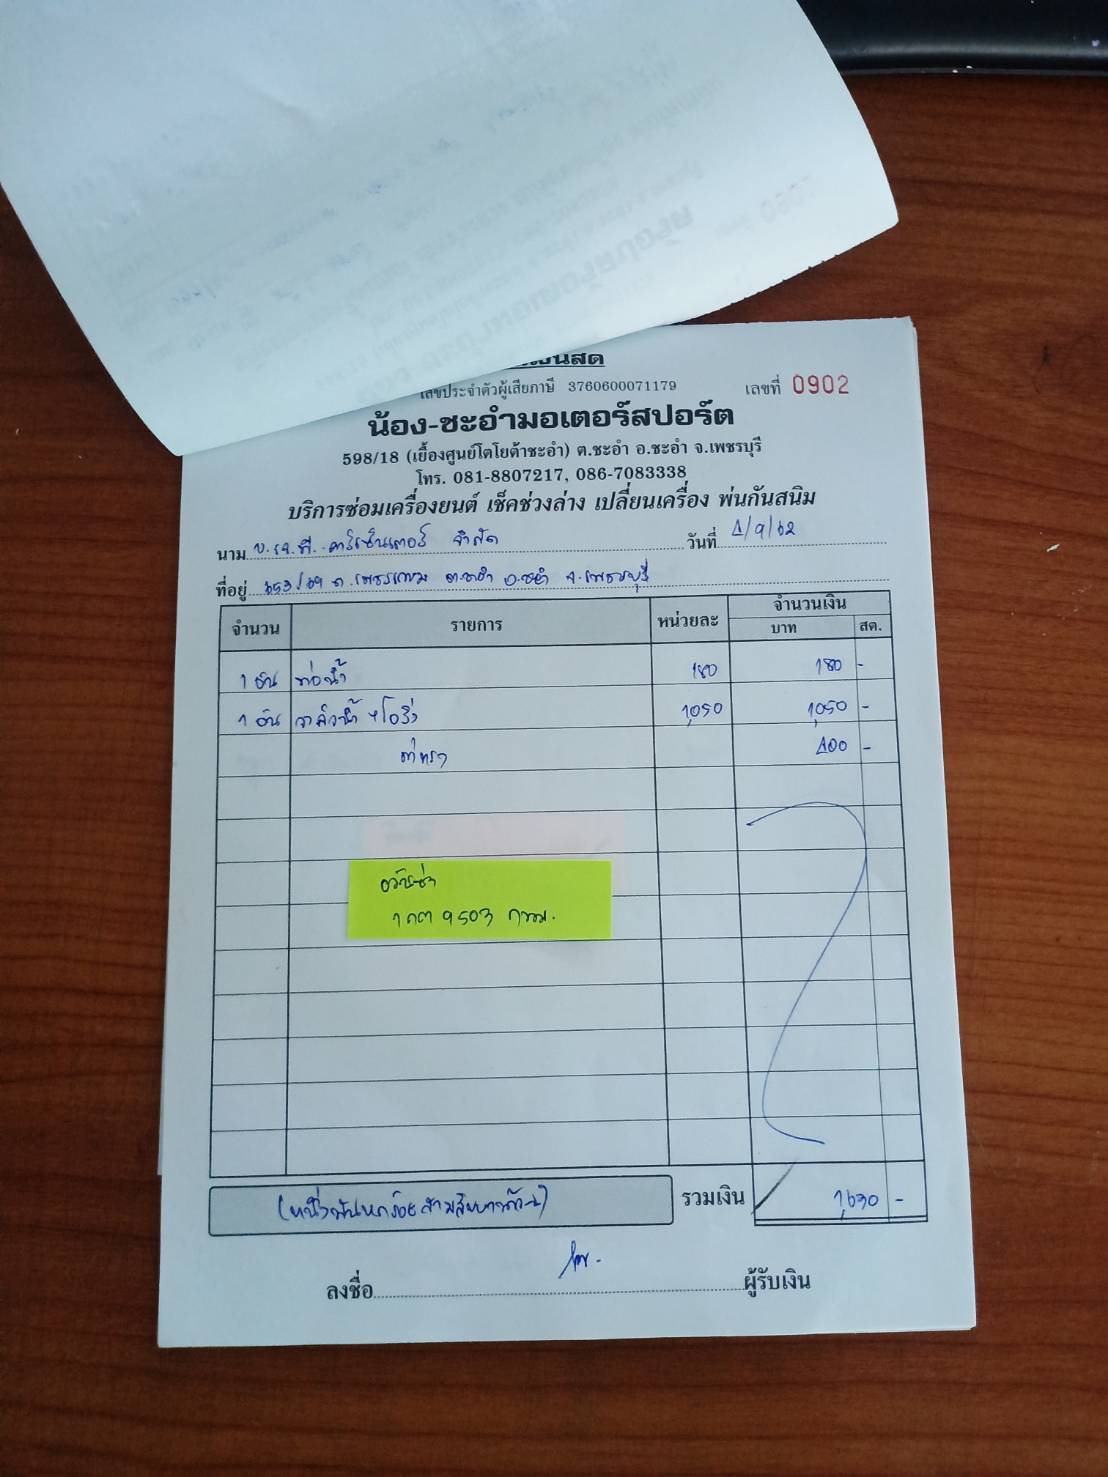 เงินสด
เลขประจำตัวผู้เสียภาษี 3760600071179 เลขที่ 0902
น้อง-ชะอำมอเตอร์สปอร์ต
598/18 (เยื้องศูนย์โตโยต้าชะอำ) ต.ชะอำ อ.ชะอำ จ.เพชรบุรี
โทร. 081-8807217, 086-7083338
บริการซ่อมเครื่องยนต์ เช็คช่วงล่าง เปลี่ยนเครื่อง พ่นกันสนิม
นาม บ. เจ.พี. คาร์เซ็นเตอร์ จำกัด วันที่ 4/9/62
ที่อยู่ 653/69 ถ.เพชรเกษม ต.ชะอำ อ.ชะอำ จ.เพชรบุรี
จำนวน รายการ หน่วยละ จำนวนเงิน
บาท สต.
1 อัน ท่อน้ำ 180 180 -
1 อัน วาล์วน้ำ +โอริ่ง 1,050 1,050 -
ค่าแรง 400 -
อวันซ่า
1 กต 9503 กทม.
(หนึ่งพันหกร้อยสามสิบบาทถ้วน) รวมเงิน 1,630 -
ลงชื่อ ผู้รับเงิน